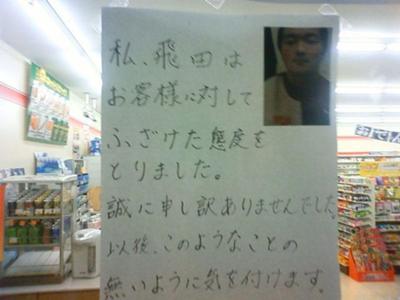 私、飛田は
お客様に対して
ふざけた態度を
とりました。
誠に申し訳ありませんでした。
以後、このようなことの
無いように気を付けます。